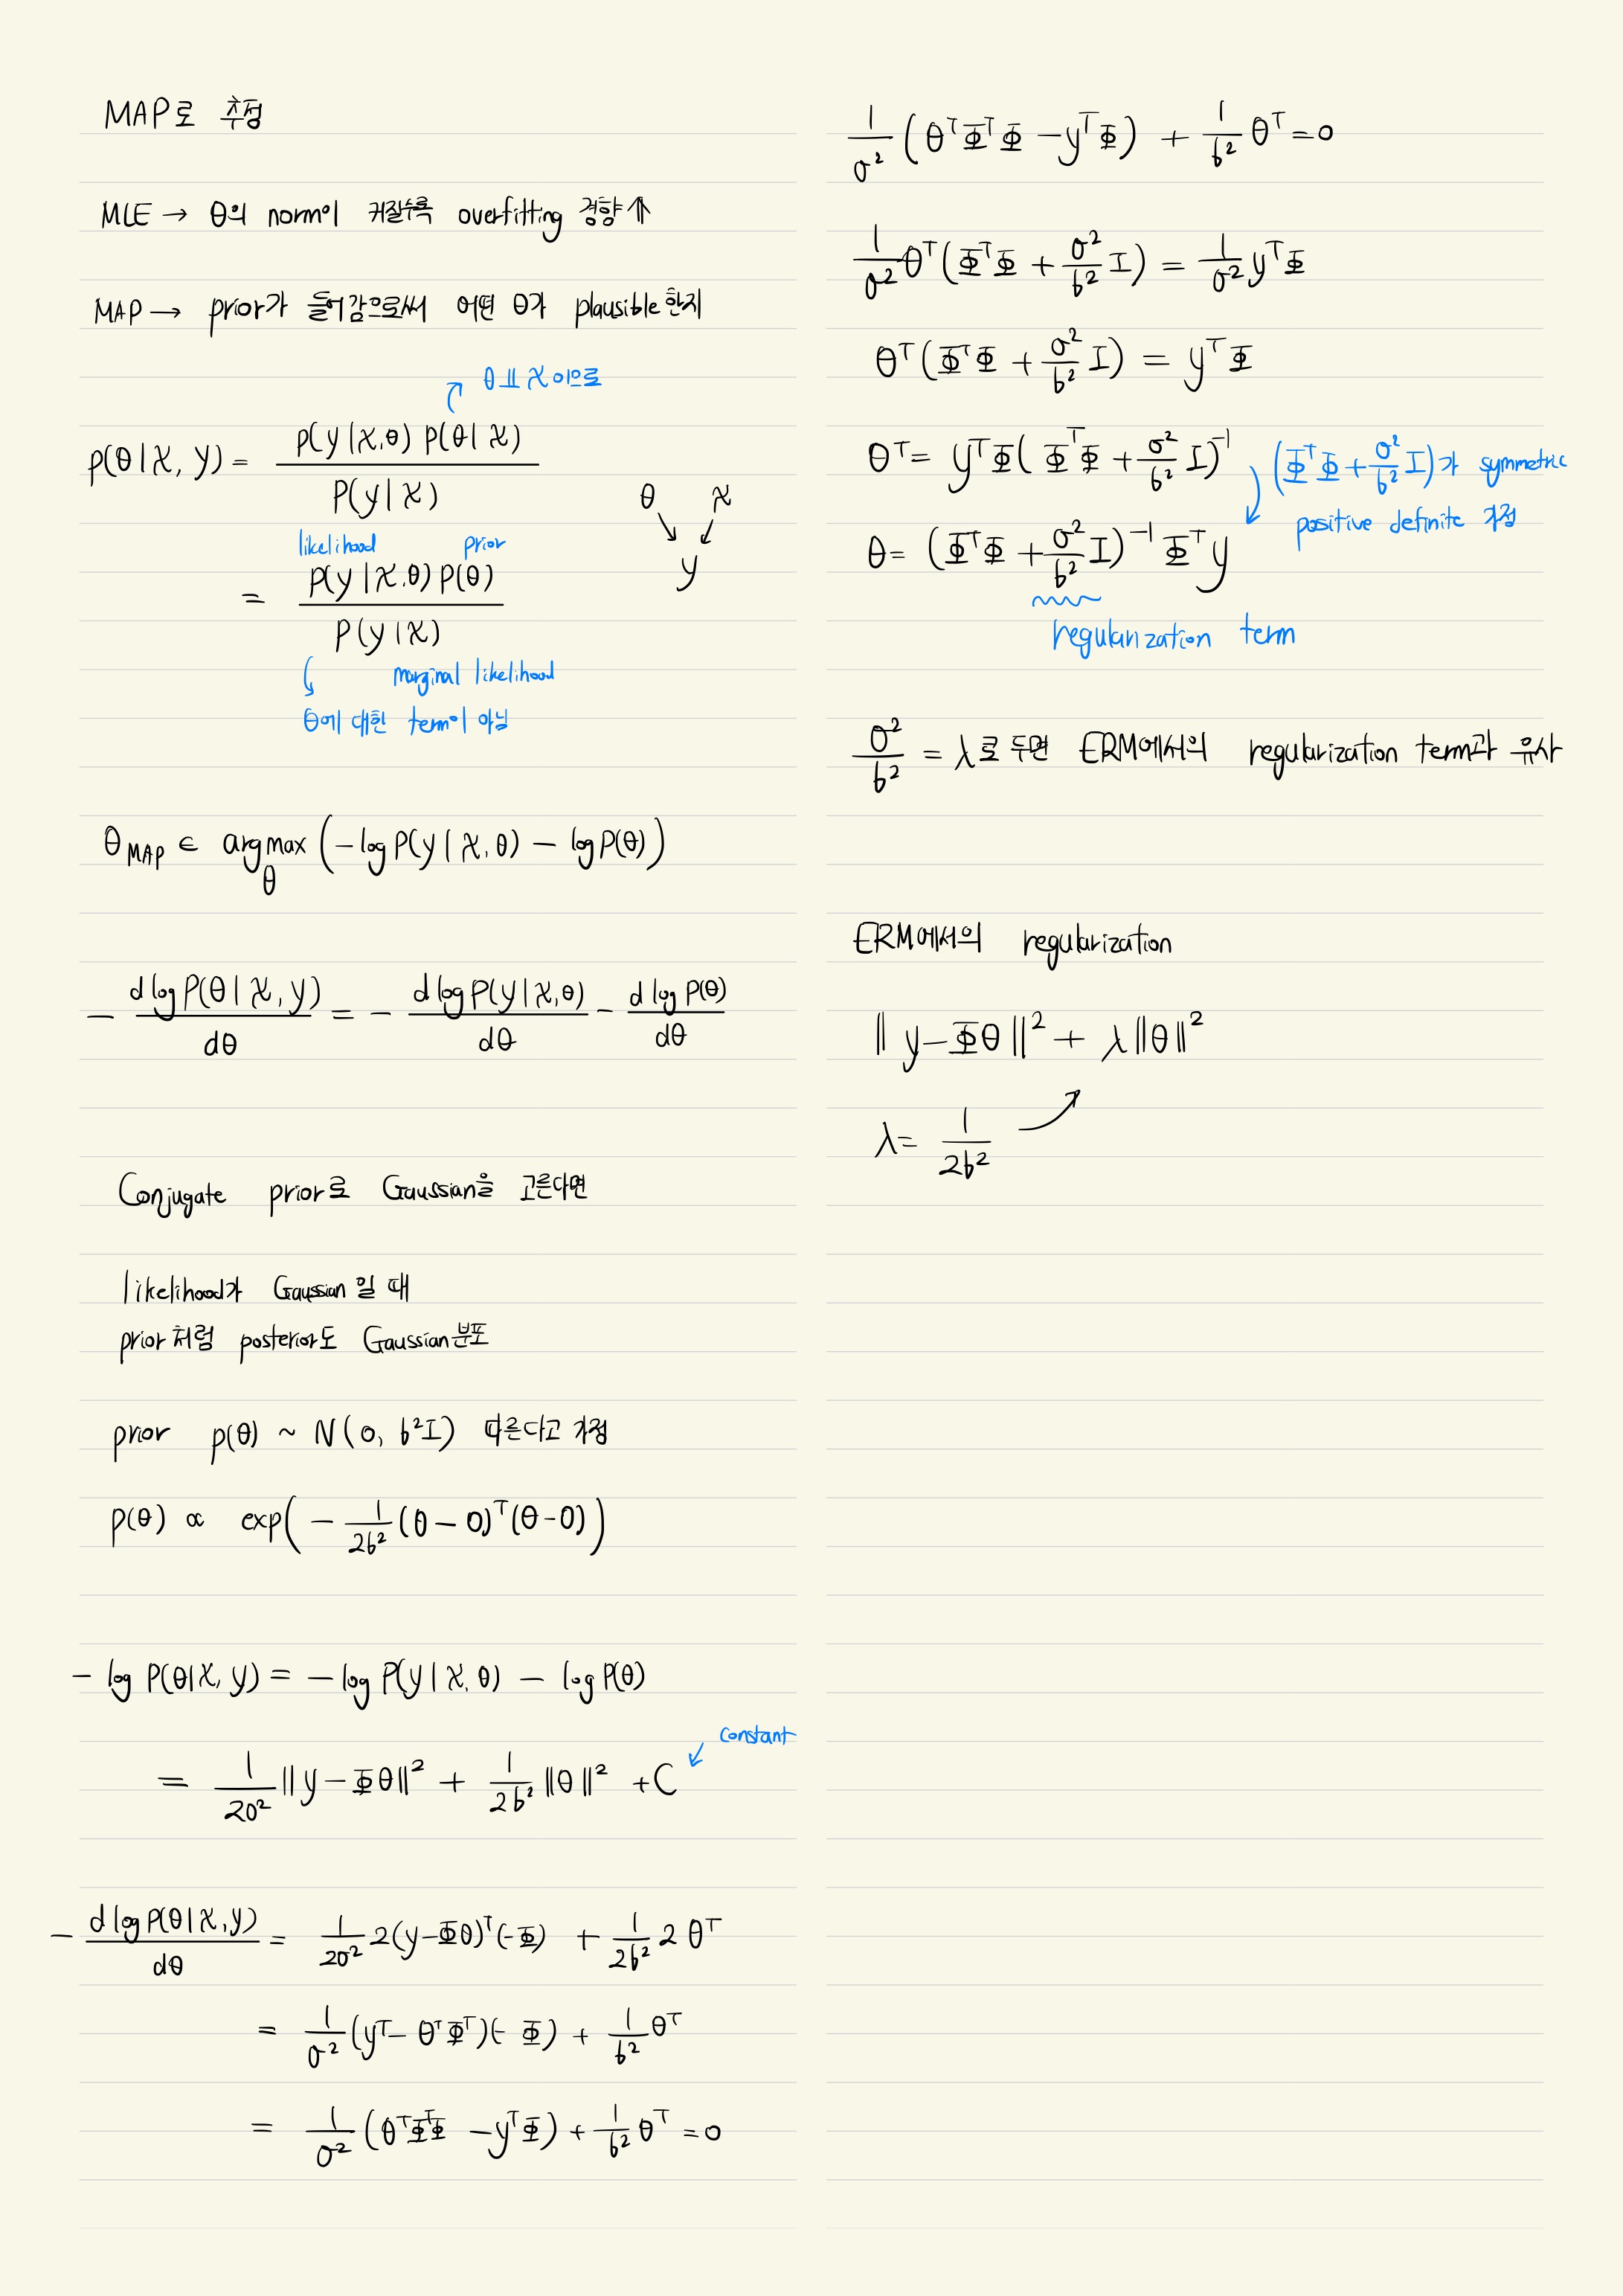 MAP로 추정
MLE → θ의 norm이 커질수록 overfitting 경향 ⇑
MAP → prior가 들어감으로써 어떤 θ가 plausible한지
θ ⫫ X 이므로
p(θ|X, y) = p(y|X,θ) p(θ|X) / P(y|X)
θ X
y
likelihood prior
= p(y|X,θ) P(θ) / P(y|X)
marginal likelihood
θ에 대한 term이 아님
θ_MAP ∈ argmax_θ (-log P(y|X, θ) - log P(θ))
- d log P(θ|X, y) / dθ = - d log P(y|X,θ) / dθ - d log P(θ) / dθ
Conjugate prior로 Gaussian을 고른다면
likelihood가 Gaussian일 때
prior처럼 posterior도 Gaussian분포
prior p(θ) ~ N(0, b²I) 따른다고 가정
p(θ) ∝ exp(- 1/2b² (θ - 0)ᵀ(θ - 0))
- log P(θ|X, y) = - log P(y|X, θ) - log P(θ)
constant
= 1/2σ² ||y - Φθ||² + 1/2b² ||θ||² + C
- d log P(θ|X,y) / dθ = 1/2σ² 2(y-Φθ)ᵀ(-Φ) + 1/2b² 2 θᵀ
= 1/σ² (yᵀ - θᵀΦᵀ)(-Φ) + 1/b² θᵀ
= 1/σ² (θᵀΦᵀΦ - yᵀΦ) + 1/b² θᵀ = 0
1/σ² (θᵀΦᵀΦ - yᵀΦ) + 1/b² θᵀ = 0
1/σ² θᵀ(ΦᵀΦ + σ²/b² I) = 1/σ² yᵀΦ
θᵀ(ΦᵀΦ + σ²/b² I) = yᵀΦ
θᵀ = yᵀΦ(ΦᵀΦ + σ²/b² I)⁻¹
(ΦᵀΦ + σ²/b² I)가 symmetric
positive definite 가정
θ = (ΦᵀΦ + σ²/b² I)⁻¹ Φᵀy
regularization term
σ²/b² = λ로 두면 ERM에서의 regularization term과 유사
ERM에서의 regularization
||y-Φθ||² + λ||θ||²
λ = 1/2b²